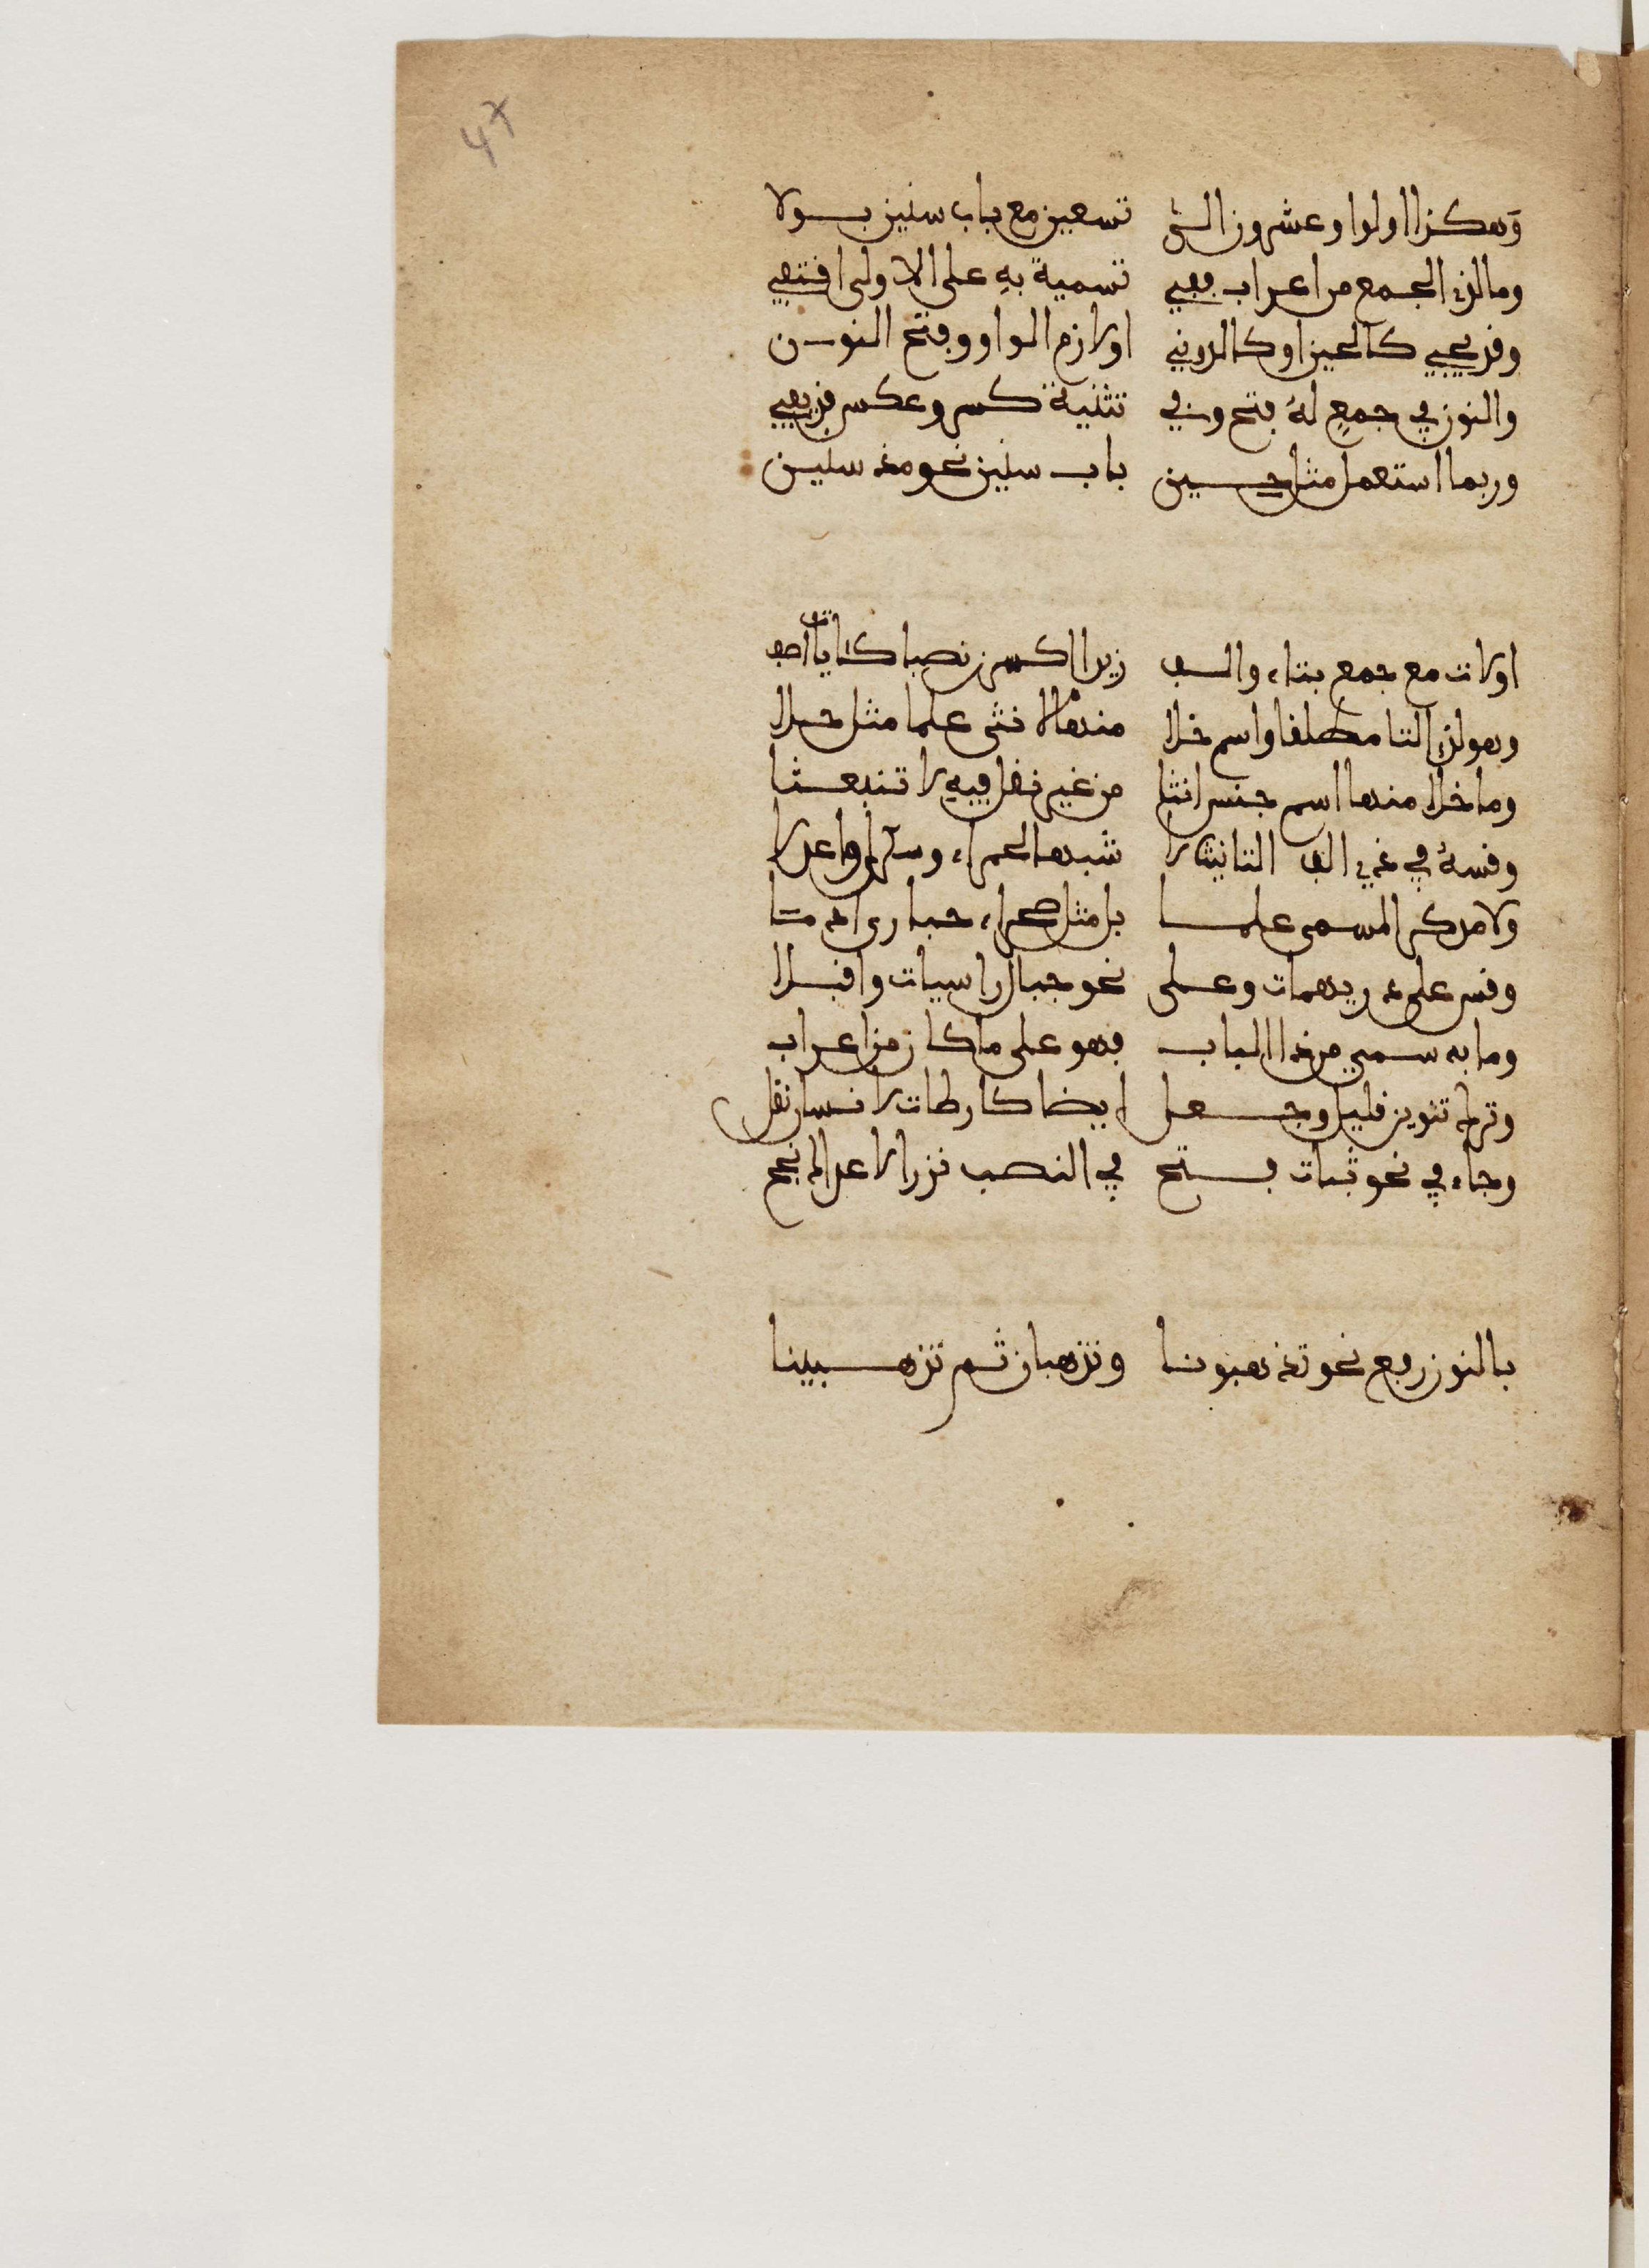 47
وهكذا اولوا وعشرون الى تسعين مع باب سنين بولا
وما لذي الجمع من اعراب ففي تسمية به على الاولى اقتفي
وقد يجيي كالحين او كالدون او لازم الواو وفتح النون
والنون في جمع له فتح وفي تثنية كسر وعكس قد يفي
وربما استعمل مثل حين باب سنين نحو مذ سنين
اولات مع جمع بتاء والف زيدا اكسرن نصبا كئايات اصف
وهو لذي التا مطلقا واسم خلا منها لانثى علما مثل حلا
وما خلا منها اسم جنس انثا من غير نقل فيه لا تنبعثا
وقسه في ذي الف التانيث لا شبه الحمراء وسكرى فاعدلا
ولا مذكر المسمى علما بل مثل صحراء حبارى ادمتا
وقس على دريهمات وعلى نحو جبال راسيات واقبلا
وما به سمي من ذا الباب فهو على ما كان من اعراب
وترك تنوين قليل وجعل ايضا كارطات لانسان نقل
وجاء في نحو ثبات فتح في النصب نزرا لا عداك نجح
بالنون رفع نحو تذهبونا وتذهبان ثم تذهبينا